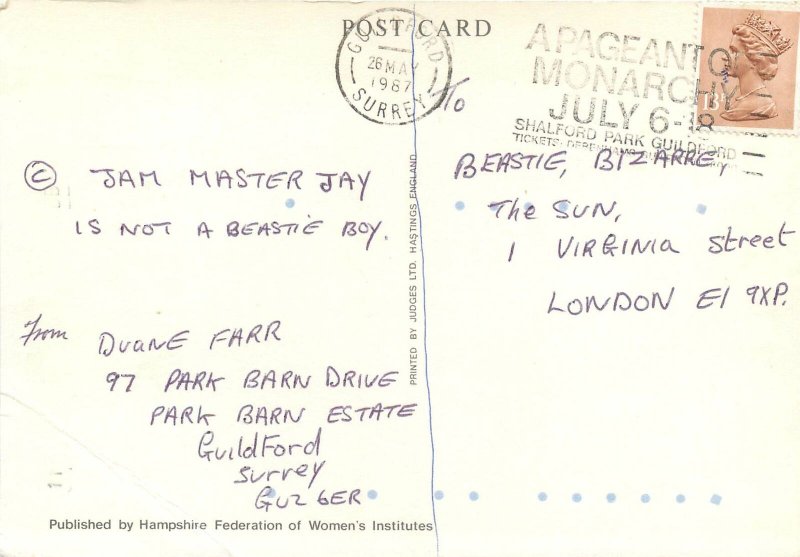 POST CARD
GUILDFORD
26 MAY
1987
SURREY
A PAGEANT OF
MONARCHY
JULY 6-18
SHALFORD PARK GUILDFORD
TICKETS: DEBENHAMS
13
To
BEASTIE, BIZARRE,
The SUN,
1 VIRGINIA Street
LONDON E1 9XP.
© JAM MASTER JAY
IS NOT A BEASTIE BOY.
From
DUANE FARR
97 PARK BARN DRIVE
PARK BARN ESTATE
GuildFord
Surrey
GU2 6ER
PRINTED BY JUDGES LTD. HASTINGS, ENGLAND
Published by Hampshire Federation of Women's Institutes